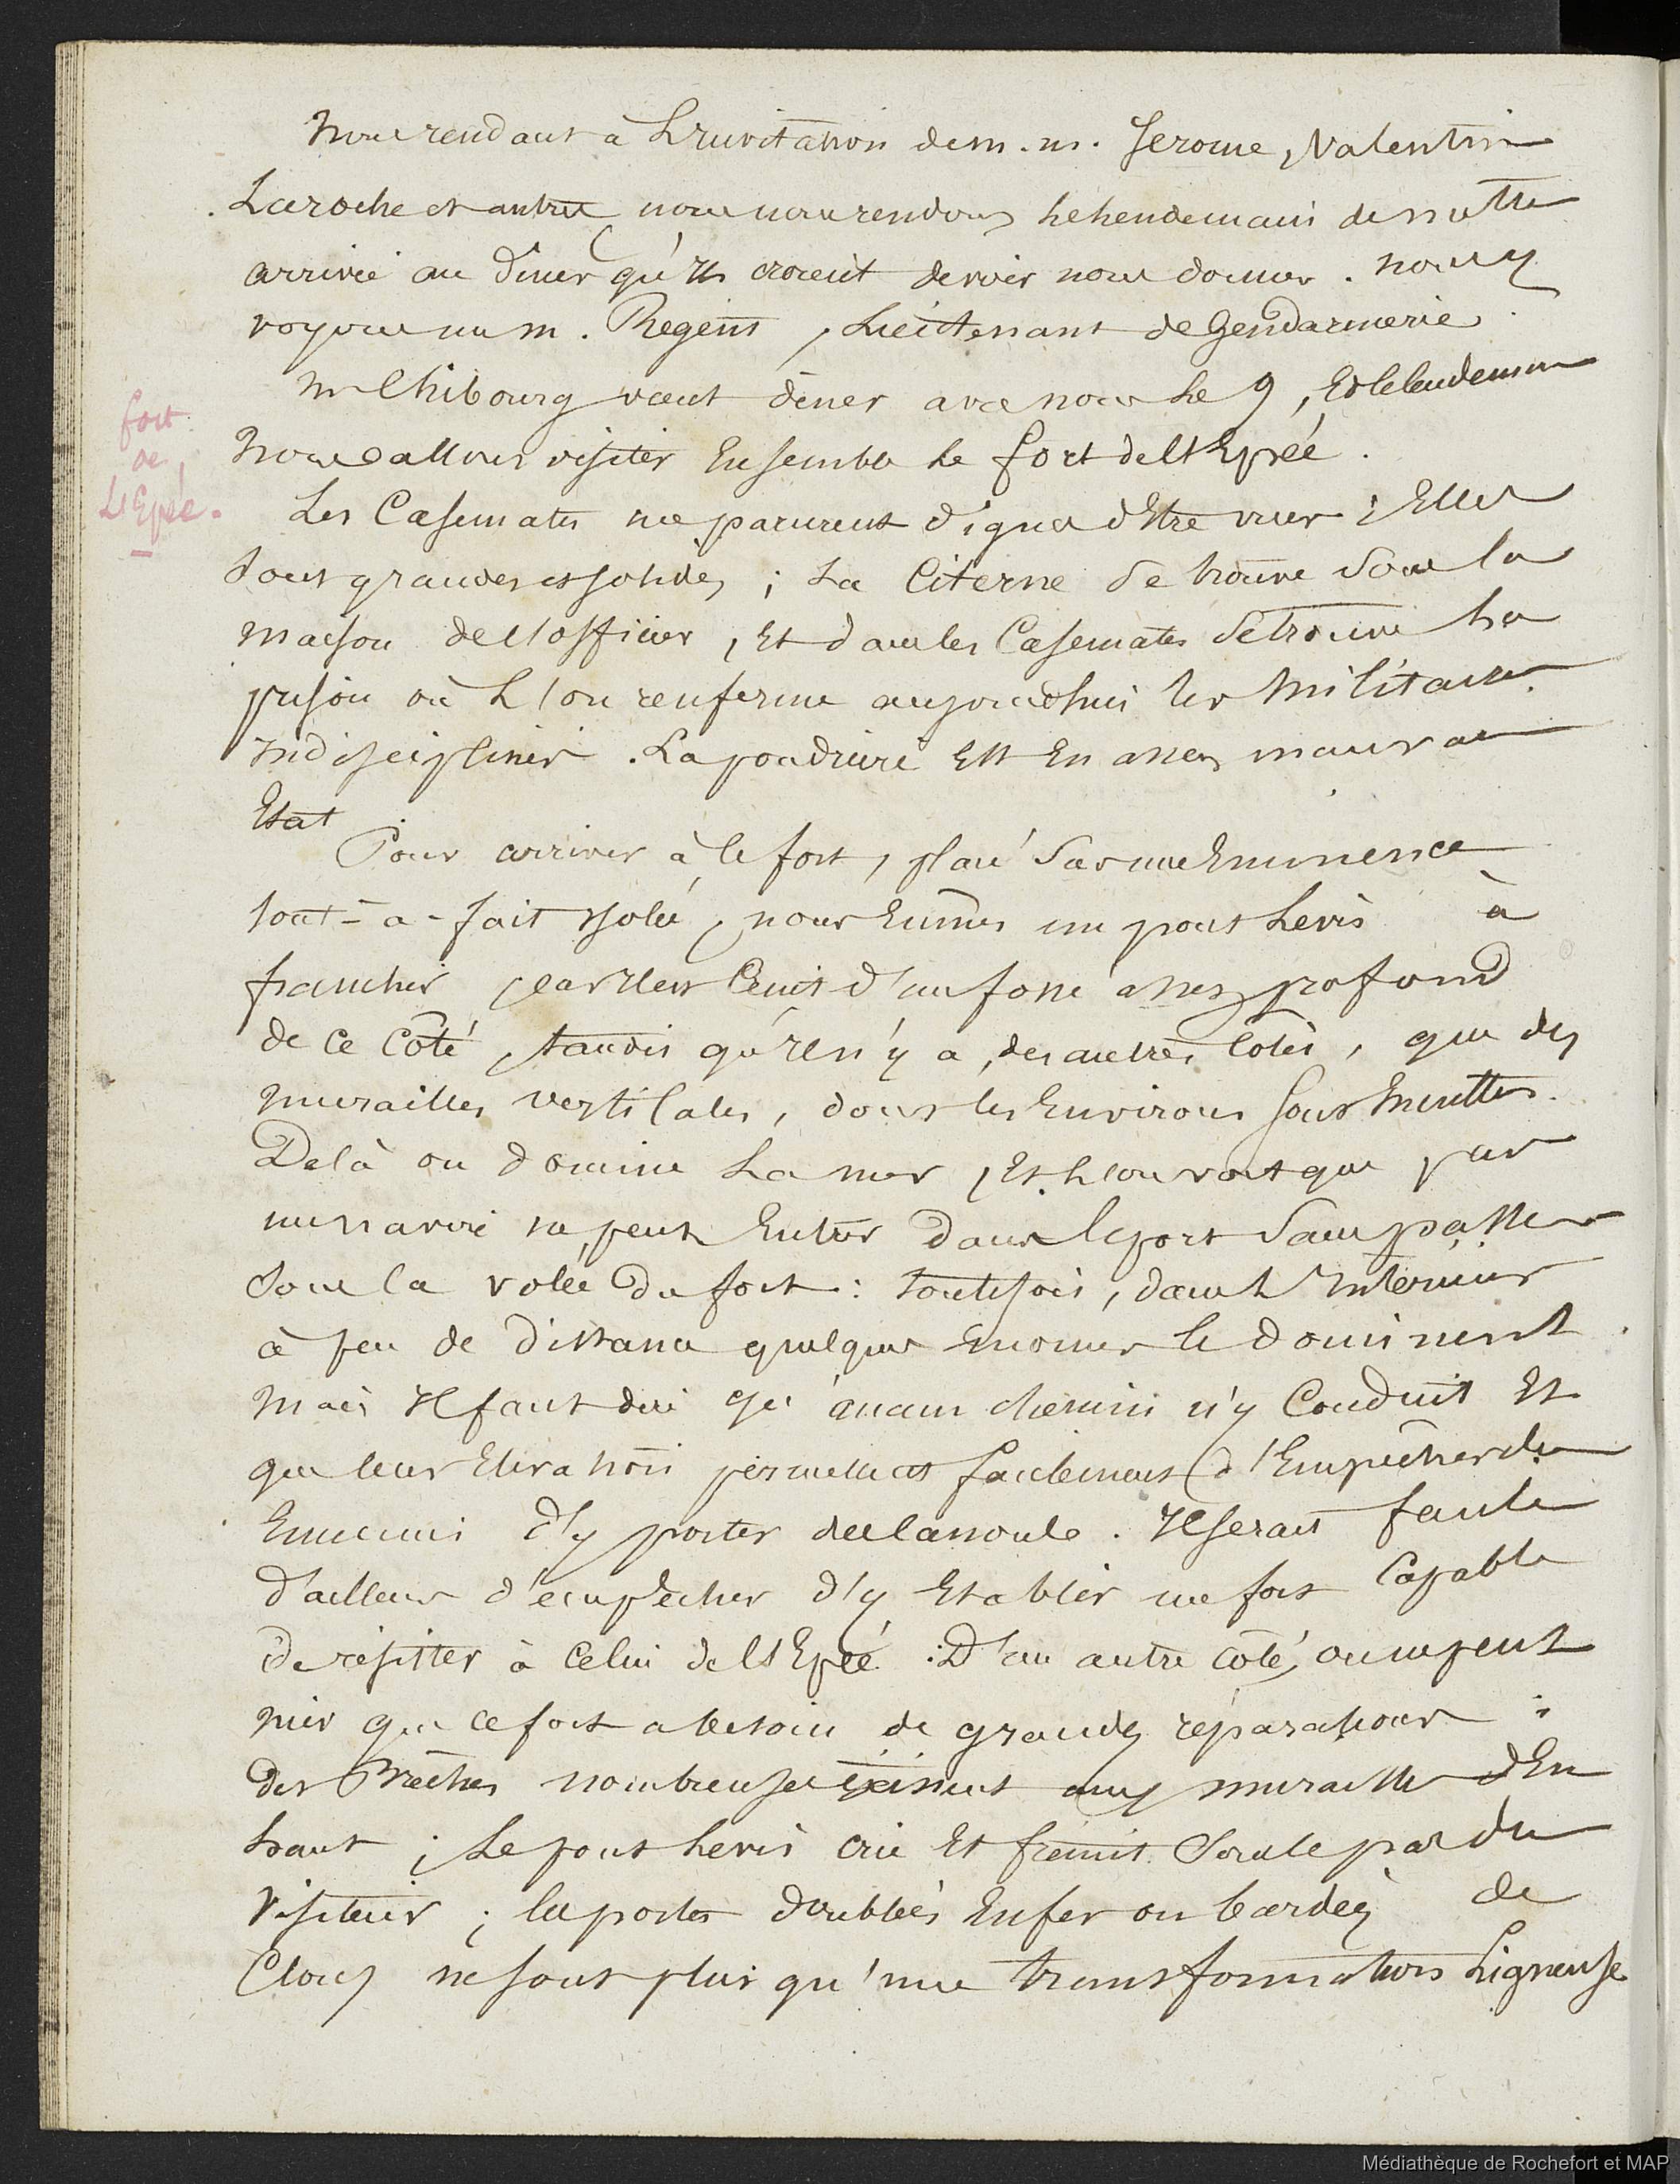 Nous rendant à L'invitation de m. m. Jerome, Valentin
Laroche et autres, nous nous rendons le Lendemain de notre
arrivée au diner qu'ils croient devoir nous donner. nous y
voyons un m. Regent, Lieutenant de Gendarmerie.
mr Chibourg vient diner avec nous Le 9, Et le lendemain
Nous allons visiter Ensemble Le fort de l'Epée.
fort
de
L'Epée.
Les Casemates me parurent dignes d'Etre vues ; Elles
Sont grandes et solides ; La Citerne Se trouve Sous la
maison de l'officier, Et dans les Casemates Se trouve La
prison où L'on renferme aujourd'hui les Militaires
indisciplinés. La poudrière Est En assez mauvais
Etat
Pour arriver à le fort, placé Sur une Eminence
tout-à-fait isolée, nous Eûmes un pont Levis à
franchir, car il est Ceint d'un fossé assez profond
de ce Côté, tandis qu'il n'y a, des autres Côtés, que des
murailles verticales, dont les Environs Sont incultes.
De là on domine La mer, Et L'on voit que pas
un navire ne peut Entrer dans le port Sans passer
Sous la volée du fort : toutefois, dans L'intérieur
à peu de distance quelques mornes le dominent.
mais il faut dire qu'aucun chemin n'y Conduit Et
que leur Elevation permettrait facilement d'Empêcher des
Ennemis d'y porter de la Serait facile
d'ailleurs d'empêcher d'y Etablir un fort Capable
de résister à Celui de l'Epée. D'un autre côté, on ne peut
nier que ce fort a besoin de grandes réparations :
des Brèches nombreuses existent aux murailles d'En
haut ; Le pont Levis crie Et frémit Sous le pas du
visiteur ; les portes doublées En fer ou bardées de
Clous ne sont plus qu'une transformation Ligneuse
Médiathèque de Rochefort et MAP